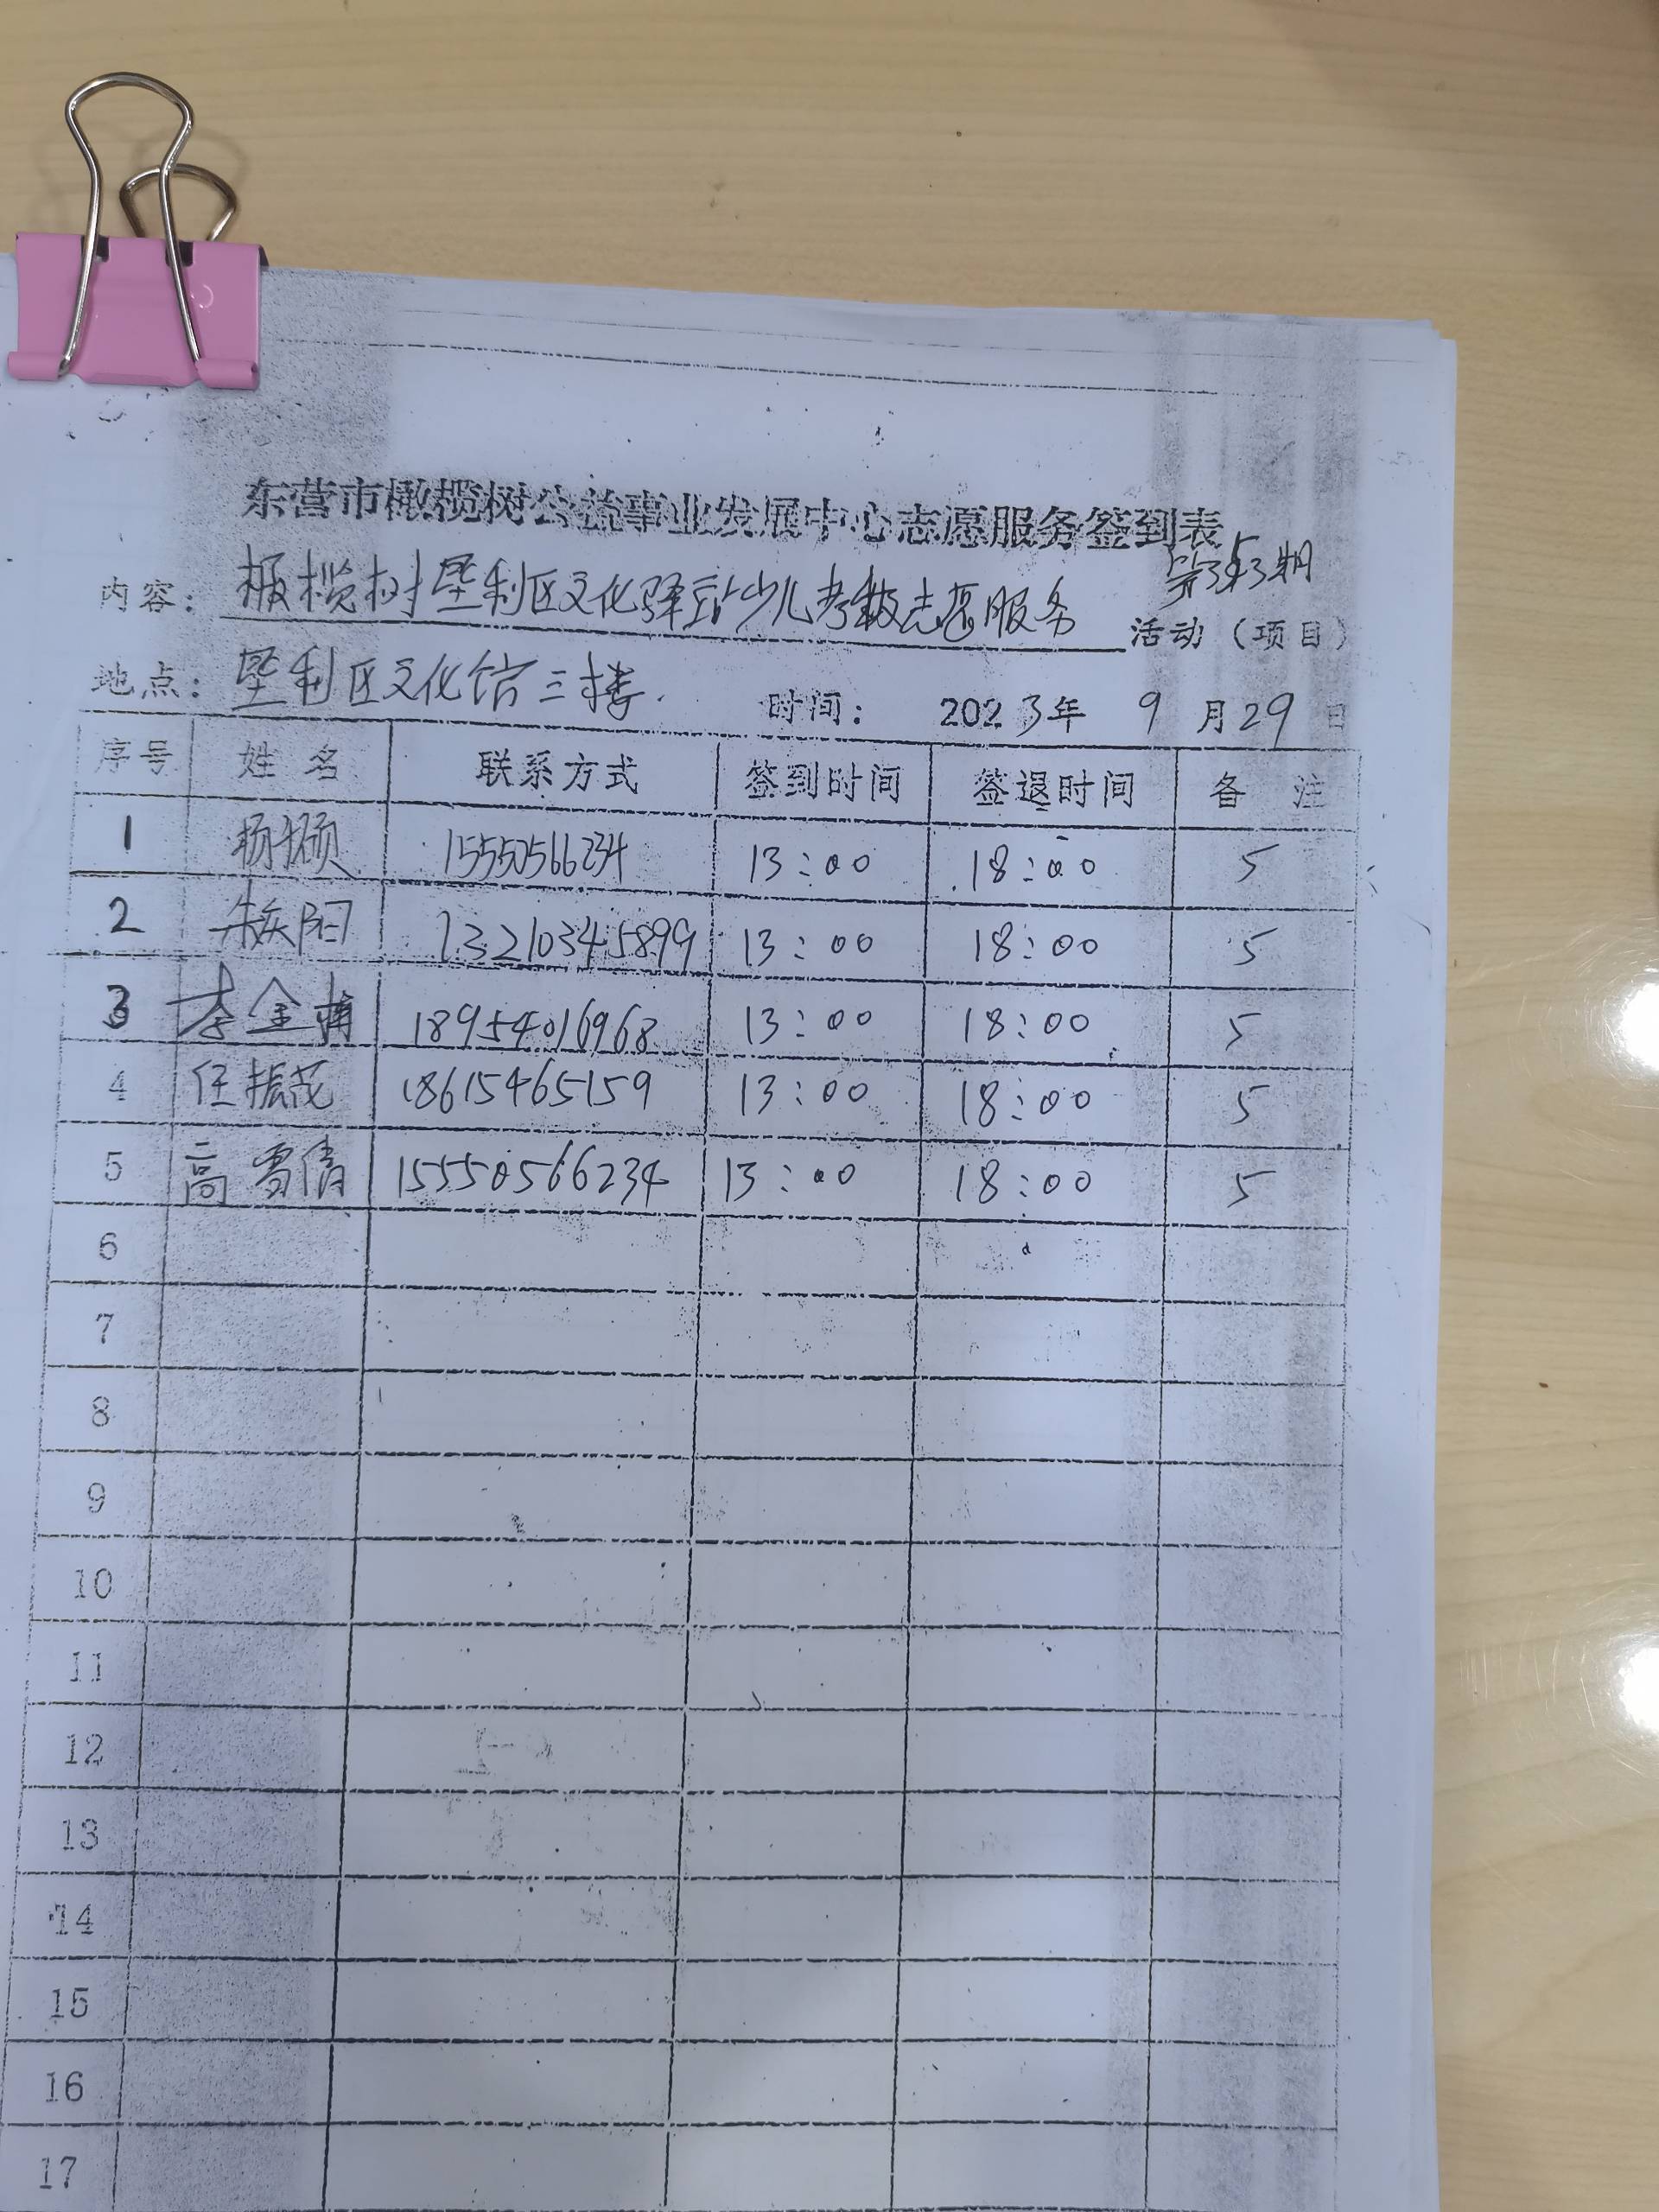 东营市橄榄树公益事业发展中心志愿服务签到表
内容： 橄榄树垦利区文化驿站少儿考级志愿服务 活动（项目）
地点： 垦利区文化馆三楼. 时间： 2023年 9 月 29 日
序号 姓 名 联系方式 签到时间 签退时间 备 注
1 杨硕 15550566234 13:00 18:00 5
2 阳 13210345899 13:00 18:00 5
3 李金 18954016968 13:00 18:00 5
4 任振花 18615465159 13:00 18:00 5
5 高雪倩 15550566234 13:00 18:00 5
6
7
8
9
10
11
12
13
14
15
16
17